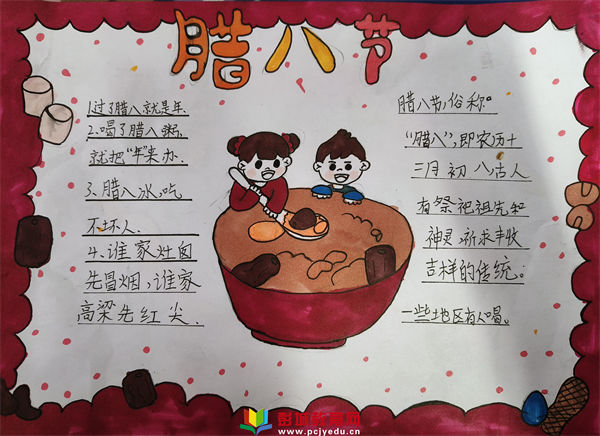 腊八节
1.过了腊八就是年.
2.喝了腊八粥,
就把“年”来办.
3.腊八冰,吃
不坏人.
4.谁家灶囱
先冒烟,谁家
高梁先红尖.
腊八节,俗称。
“腊八”,即农历十
二月初八古人
有祭祀祖先和
神灵,祈求丰收
吉祥的传统。
一些地区有人喝。
彭城教育网
www.pcjyedu.cn